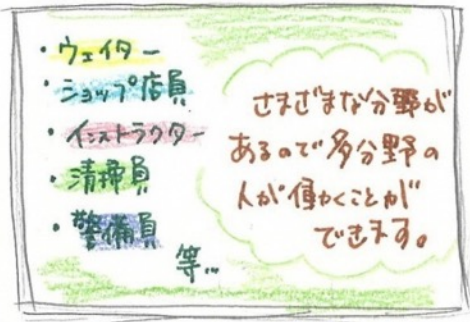 ・ウェイター
・ショップ店員
・インストラクター
・清掃員
・警備員
等...
さまざまな分野が
あるので多分野の
人が働くことが
できます。